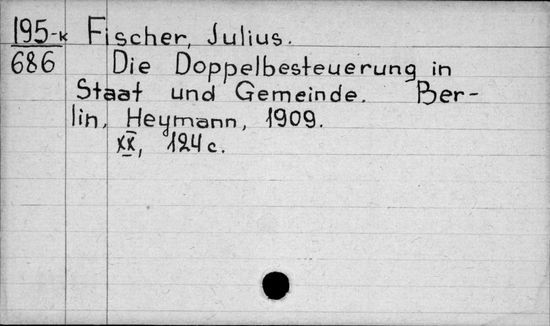 195-к Fischer, Julius.
686 Die Doppelbesteuerung in
Staat und Gemeinde. Ber-
lin, Heymann, 1909.
XX, 124 c.